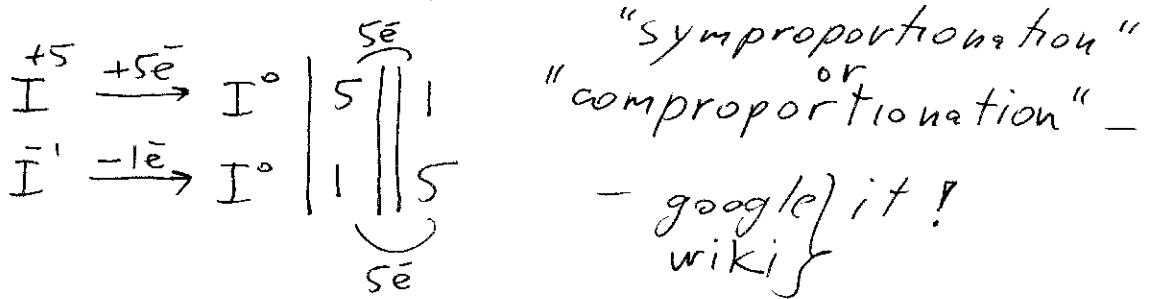 5ē
I⁺⁵ +5ē → I⁰ | 5 || 1
I⁻¹ -1ē → I⁰ | 1 || 5
5ē
"symproportionation"
or
"comproportionation" –
– google } it !
wiki }